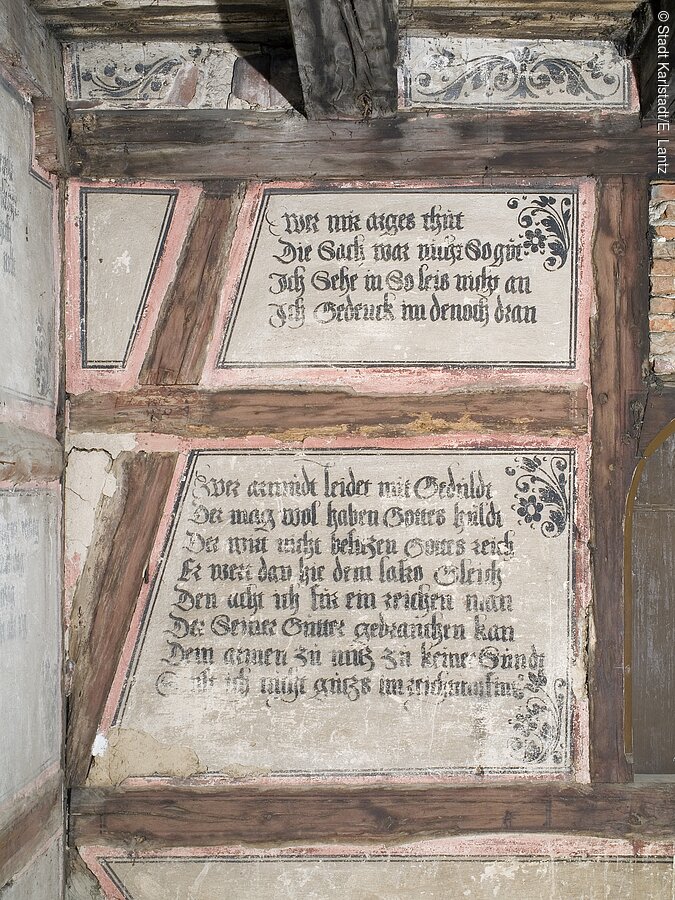 Wer mir arges thut
Die Sach war nuhr So gut
Ich Sehe in So leis nicht an
Ich Gedenck im denoch dran
Wer armudt leidet mit Geduldt
Der mag wol haben Gottes huldt
Der wirt nicht besitzen Gottes reich
Er wert dan hie dem Gleich
Den acht ich für ein reichen man
Der Seiner Gutter gebrauchen kan
Dem armen zu nutz zu keiner Sündt
ich nicht gutzs im
© Stadt Karlstadt/E. Lantz